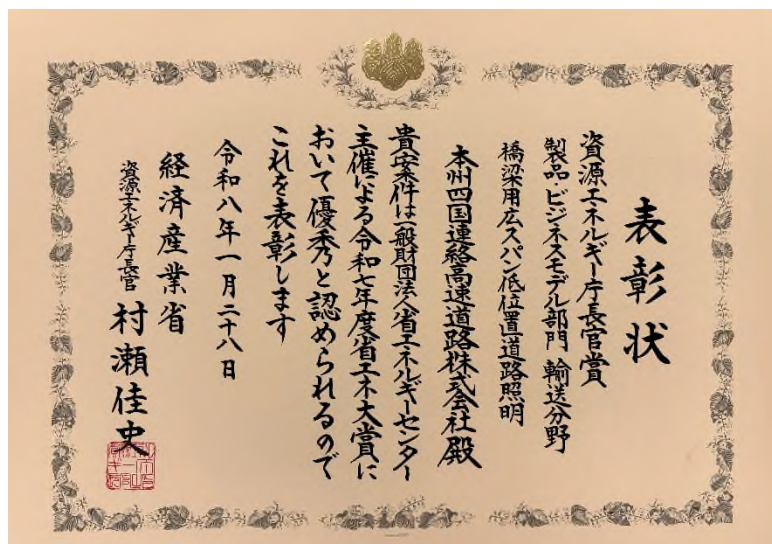 表彰状
資源エネルギー庁長官賞
製品・ビジネスモデル部門 輸送分野
橋梁用広スパン低位置道路照明
本州四国連絡高速道路株式会社殿
貴応募案件は一般財団法人省エネルギーセンター
主催による令和七年度省エネ大賞に
おいて優秀と認められるので
これを表彰します
令和八年一月二十八日
経済産業省
資源エネルギー庁長官
村瀬佳史